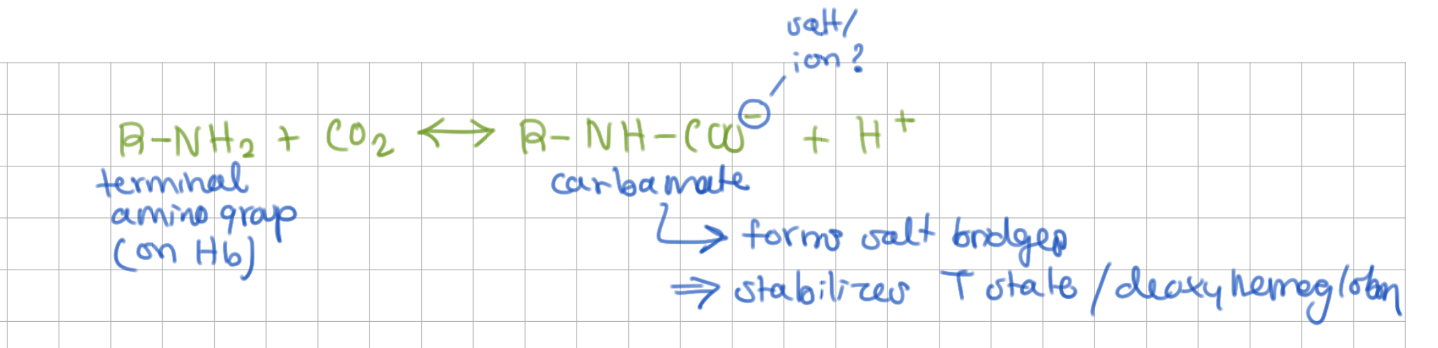 salt/
ion?
R-NH2 + CO2 ⟷ R-NH-COO⁻ + H⁺
terminal
amino group
(on Hb)
carbamate
↳ forms salt bridges
⇒ stabilizes T state / deoxyhemoglobin